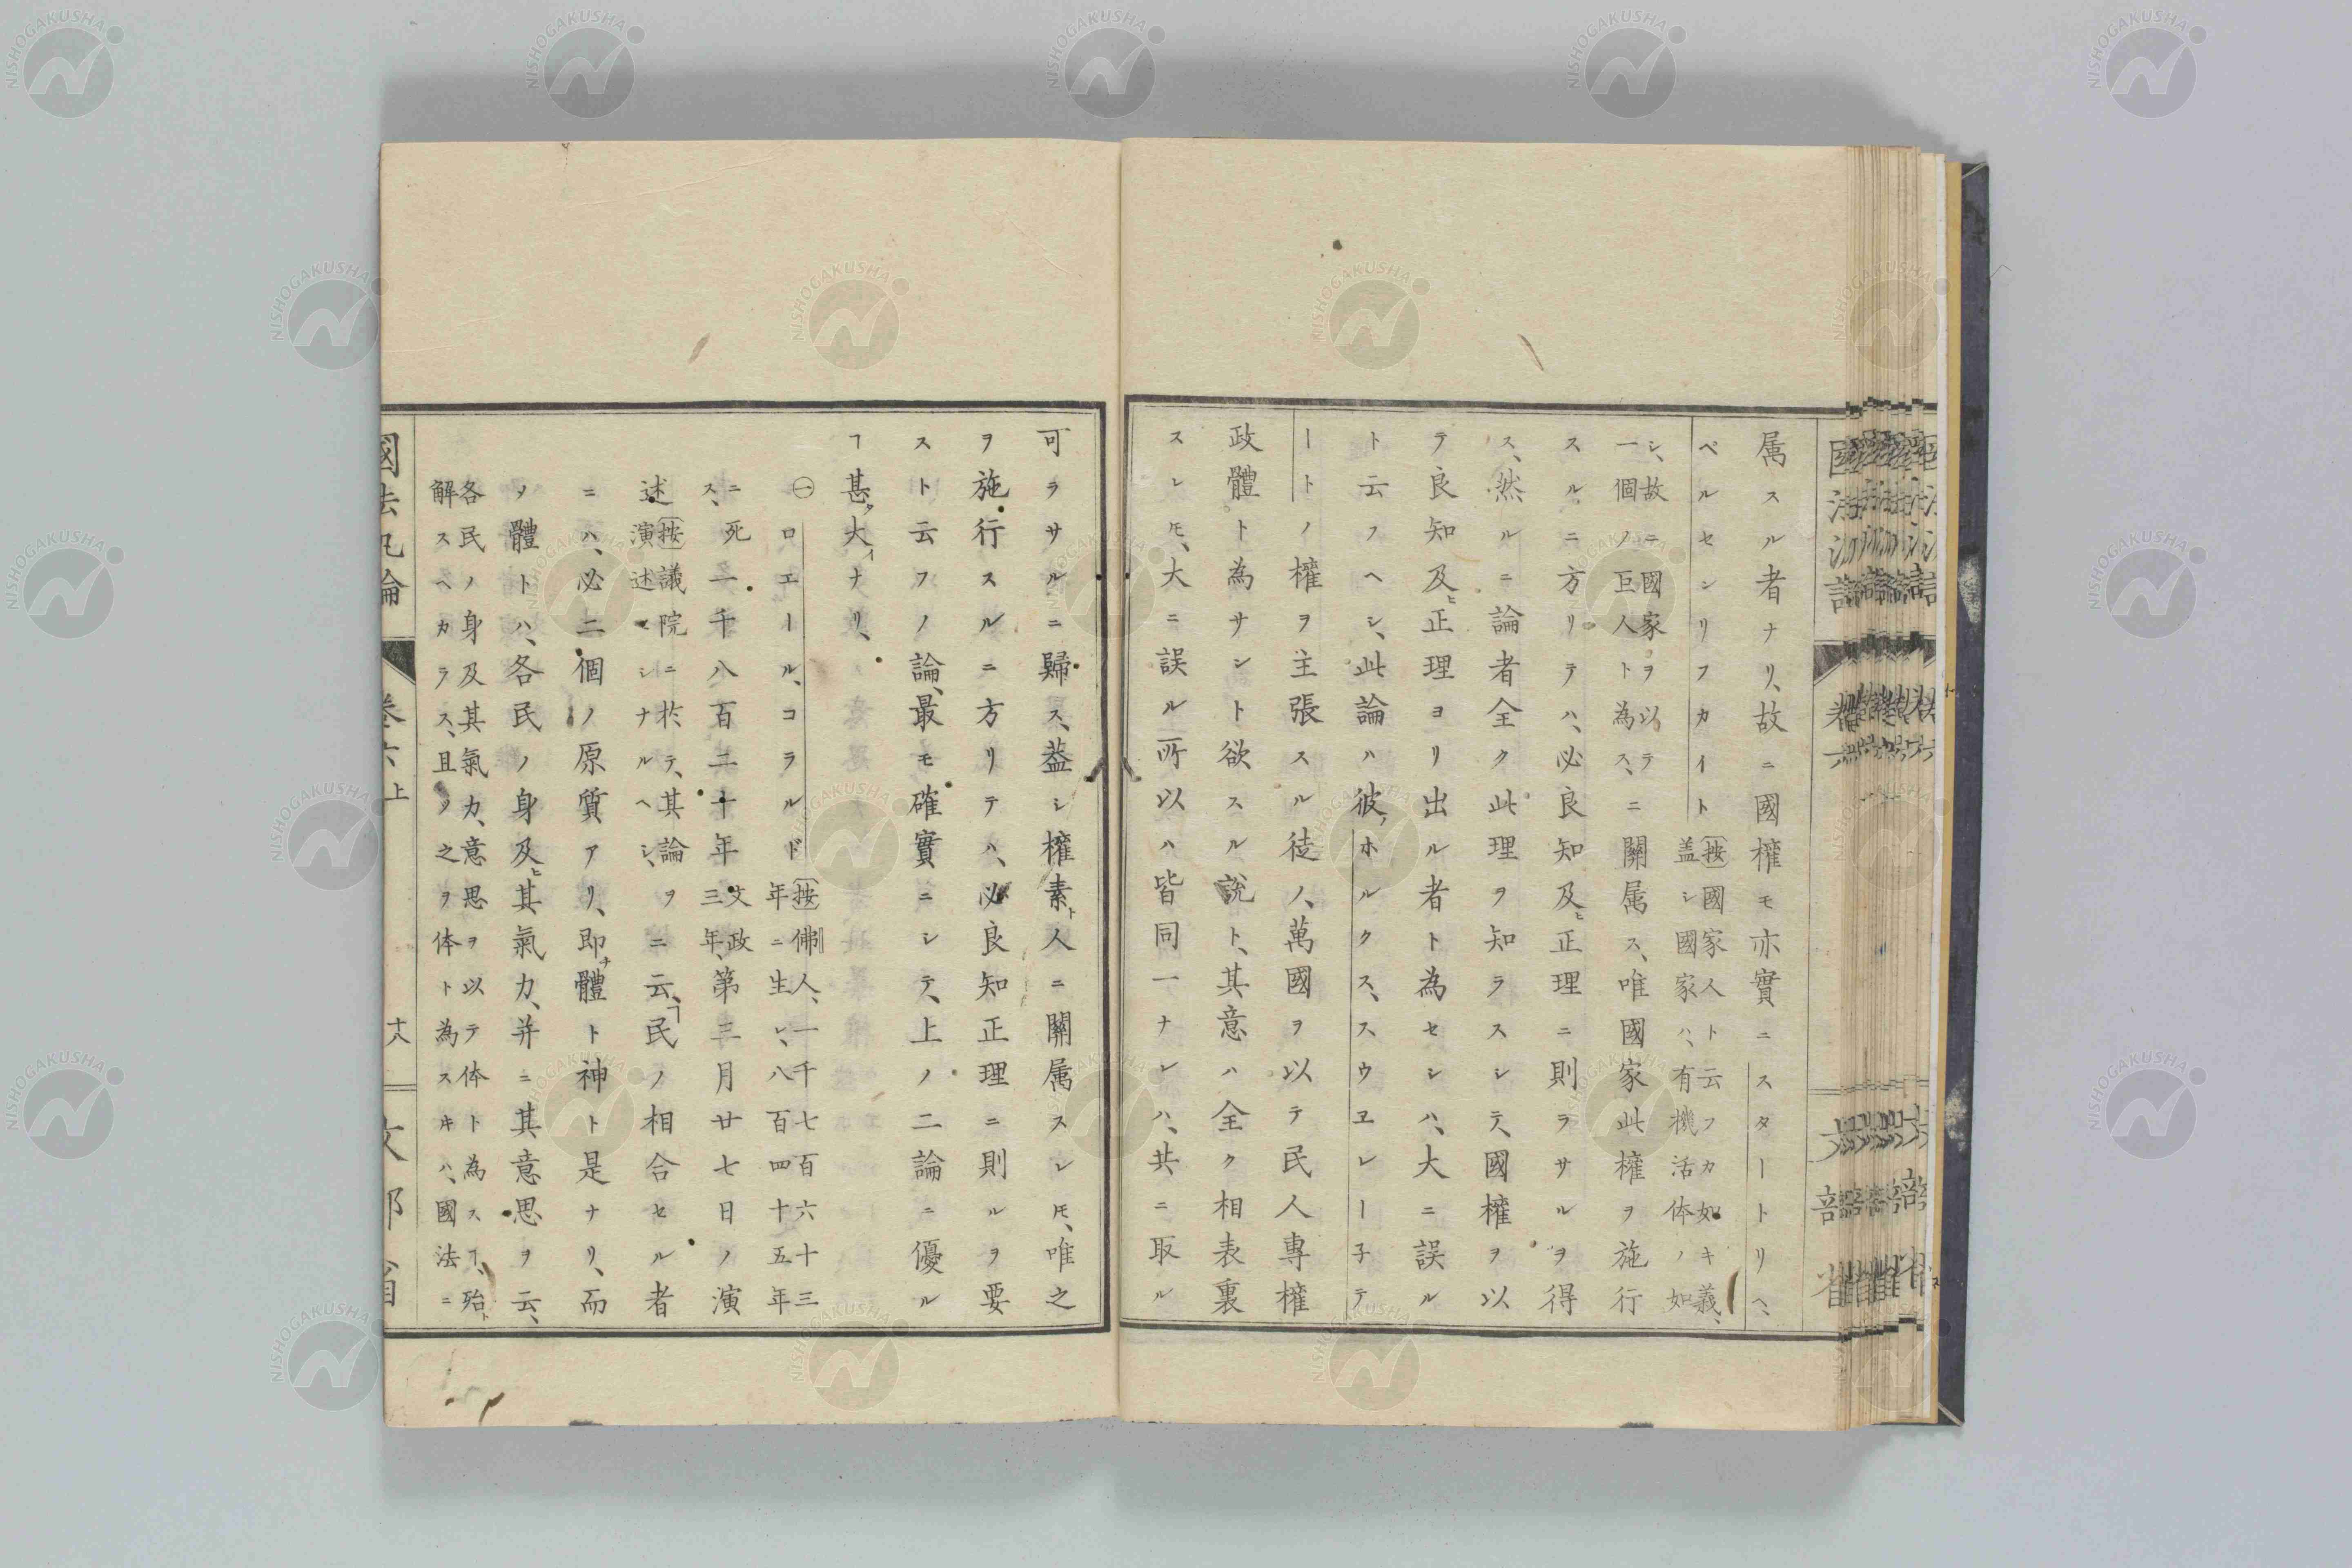 属スル者ナリ、故ニ國權モ亦實ニスタートリヘ、
ペルセンリフカイト
〔按〕國家人ト云フカ如キ義、
盖シ國家ハ、有機活体ノ如
シ、故ニ國家ヲ以テ
一個ノ巨人ト為ス、
ニ關属ス、唯國家此權ヲ施行
スルニ方リテハ、必良知及ヒ正理ニ則ラサルヲ得
ス、然ルニ論者全ク此理ヲ知ラスシテ、國權ヲ以
テ良知及ヒ正理ヨリ出ル者ト為セシハ、大ニ誤ル
ト云フヘシ、此論ハ彼ノホルクス、スウヱレー子テ
ートノ權ヲ主張スル徒ノ、萬國ヲ以テ民人專權
政體ト為サント欲スル說ト、其意ハ全ク相表裏
スレㇳモ、大ニ誤ル所以ハ皆同一ナレハ、共ニ取ル
可ラサルニ歸ス、葢シ權素ト人ニ關属スレㇳモ、唯之
ヲ施行スルニ方リテハ、必良知正理ニ則ルヲ要
スト云フノ論、最モ確實ニシテ、上ノ二論ニ優ル
ヿ甚タ大イナリ、
㊀ロエール、コラルド
〔按〕佛人、一千七百六十三
年ニ生シ、八百四十五年
ニ死
ス、
一千八百二十年
文政
三年、
第三月廿七日ノ演
述
〔按〕議院ニ於テ、其論ヲ
演述セシナルヘシ、
ニ云、「民ノ相合セル者
ニハ、必二個ノ原質アリ、即チ體ト神ト是ナリ、而
ノ體トハ、各民ノ身及ヒ其氣力、并ニ其意思ヲ云、
各民ノ身及其氣力、意思ヲ以テ体ト為スヿ、殆ト
解スヘカラス、且ツ之ヲ体ト為スキハ、國法ニ
國法汎論
卷六上
十八
文部省